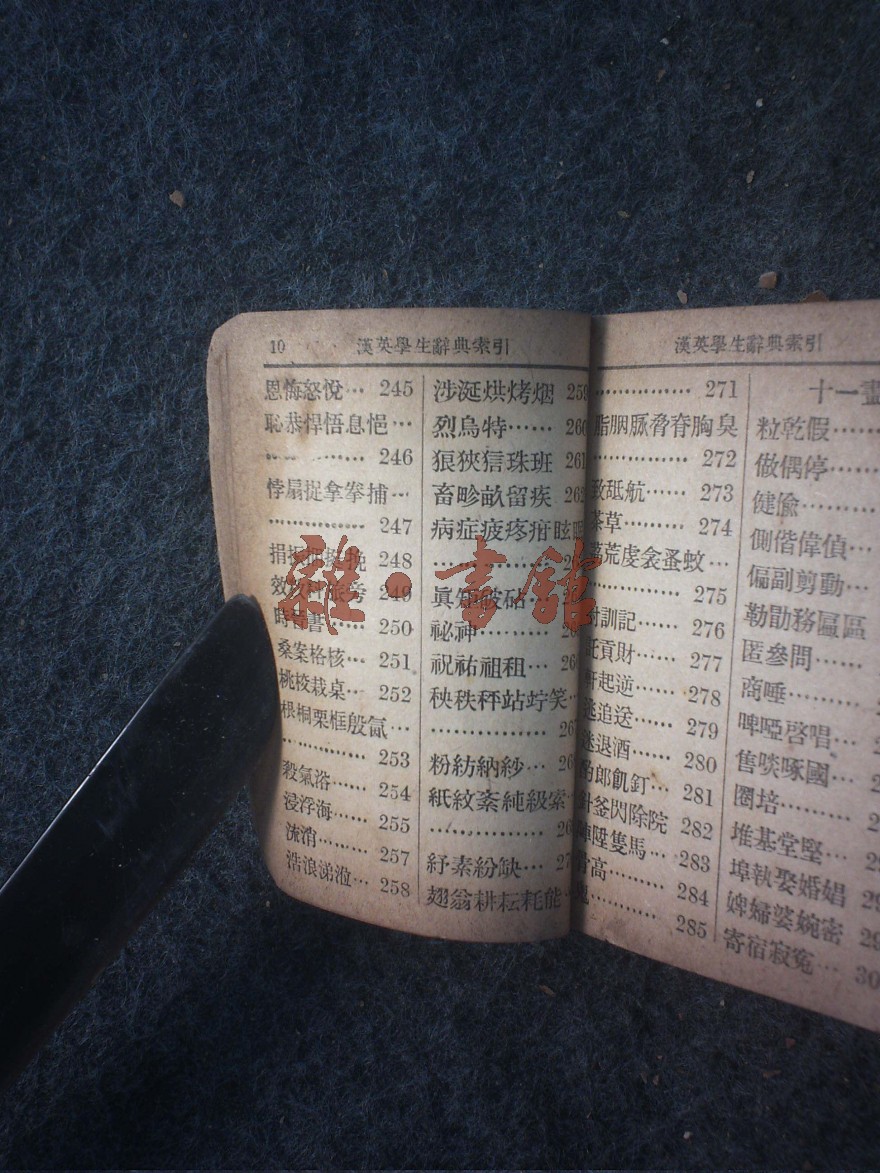 10 漢英學生辭典索引
恩悔怒悅… 245
恥恭悍悟息悒…
………… 246
悖扇捉拿拳捕…
………… 247
挽 248
249
時書…… 250
桑案格核… 251
桃校栽桌… 252
根桐栗框殷氤…
………… 253
殺氣浴…… 254
浸浮海…… 255
流消……… 257
浩浪涕涖… 258
涉涎烘烤烟 259
烈烏特…… 260
狼狹狺珠班 261
畜畛畝留疾 262
病症疲疼疳眩眠
…………
眞破砧…
祕神………
祝祐祖租…
秧秩秤站竚笑
…………
粉紡納紗…
紙紋紊純級索
…………
紓素紛缺…
翅翁耕耘耗能
漢英學生辭典索引
………… 271
脂胭脈脅脊胸臭
………… 272
致舐航…… 273
茶草……… 274
荒虔衾蚤蚊…
………… 275
討訓記…… 276
託貢財…… 277
軒起逆…… 278
逃追送…… 279
迷退酒…… 280
酌郎飢釘… 281
針釜閃除院 282
陣陞隻馬… 283
骨高……… 284
鬼………… 285
十一畫
粒乾假……
做偶停……
健偸………
側偕偉偵…
偏副剪動…
勒勖務匾區
匿參問……
商唾………
啤啞啓唱…
售啖啄國…
圈培………
堆基堂堅…
埠執娶婚娼
婢婦婆婉密
寄宿寂冤…
雜·書館